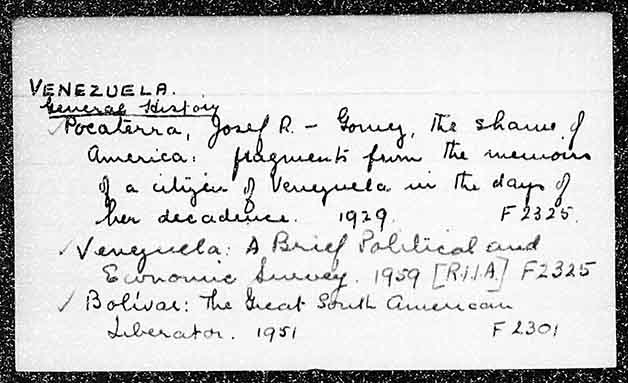 VENEZUELA.
General History
✓Pocaterra, Josef R. – Gomez, the shame of
America: fragments from the memoirs
of a citizen of Venezuela in the days of
her decadence. 1929. F2325.
✓ Venezuela: A Brief Political and
Economic Survey. 1959 [R.I.I.A.] F2325
✓ Bolívar: The Great South American
Liberator. 1951 F2301